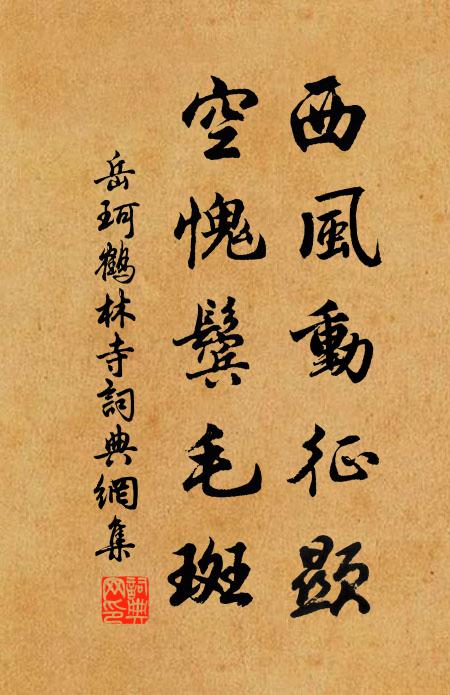 西風動征顯
空愧鬓毛斑
岳珂鶴林寺詞典網集
詞典
网印